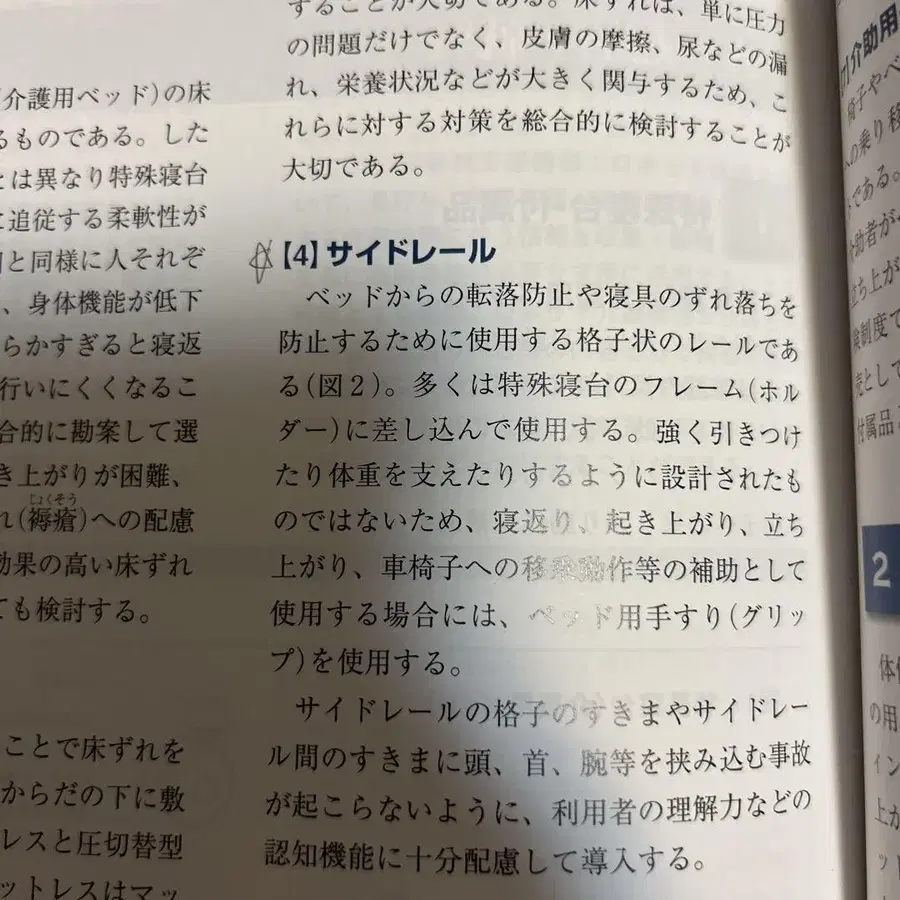 介護用ベッド)の床
るものである。した
とは異なり特殊寝台
に追従する柔軟性が
同と同様に人それぞ
、身体機能が低下
らかすぎると寝返
行いにくくなるこ
合的に勘案して選
き上がりが困難、
じょくそう
れ(褥瘡)への配慮
効果の高い床ずれ
ても検討する。
ことで床ずれを
からだの下に敷
レスと圧切替型
ットレスはマッ
することが大切である。床ずれは、単に圧力
の問題だけでなく、皮膚の摩擦、尿などの漏
れ、栄養状況などが大きく関与するため、こ
れらに対する対策を総合的に検討することが
大切である。
☆【4】サイドレール
ベッドからの転落防止や寝具のずれ落ちを
防止するために使用する格子状のレールであ
る(図2)。多くは特殊寝台のフレーム(ホル
ダー)に差し込んで使用する。強く引きつけ
たり体重を支えたりするように設計されたも
のではないため、寝返り、起き上がり、立ち
上がり、車椅子への移乗動作等の補助として
使用する場合には、ベッド用手すり(グリッ
プ)を使用する。
サイドレールの格子のすきまやサイドレー
ル間のすきまに頭、首、腕等を挟み込む事故
が起こらないように、利用者の理解力などの
認知機能に十分配慮して導入する。
介助用
椅子やベ
の乗り移
である。
助者が
立ち上が
険制度で
売として
付属品
2
体
の用
イン
上か
ット